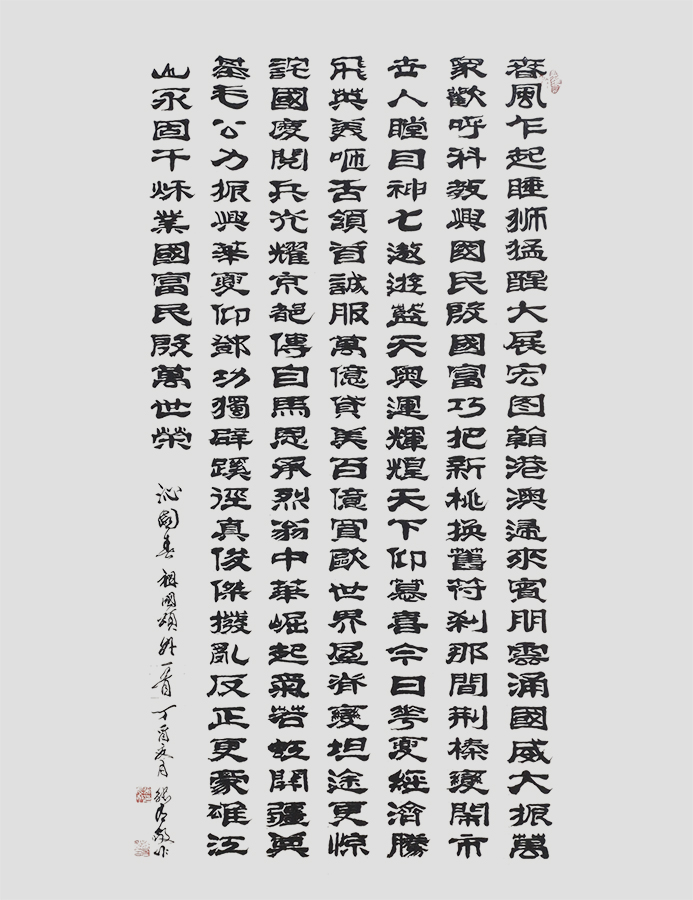 春風乍起睡狮猛醒大展宏图港澳來賓朋雲涌國威大振萬
眾歡呼科教興國民殷國富巧把新桃換舊符刹那間荆榛變鬧市
世人瞠目神七遨遊藍天奥運輝煌天下仰慕喜今日華夏經濟騰
飛英美咂舌領首誠服萬億貸美百億買歐世界屋脊變坦途更惊
詫國慶閲兵光耀京都傳自馬恩承烈翁中華崛起氣若虹開疆奠
基毛公力振興華夏仰鄧功獨辟蹊徑真俊傑撥亂反正更豪雄江
山永固千秌業國富民殷萬世榮
沁園春 祖國頌外一首 丁酉夏月